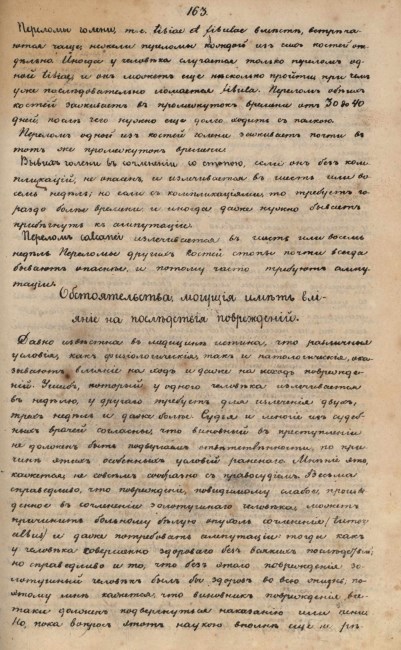 163.
Переломы голени, т.е. tibiae et fibulae вместѣ, встрѣча-
ются чаще, нежели переломы каждой изъ сихъ костей от-
дѣльно. Иногда у человѣка случается только переломъ од-
ной tibiae, и онъ можетъ еще нѣсколько пройти, при чемъ
уже послѣдовательно ломается fibula. Переломъ обѣихъ
костей заживаетъ въ промежутокъ времени отъ 30 до 40
дней, послѣ чего нужно еще долго ходить съ палкою.
Переломъ одной изъ костей голени заживаетъ почти въ
тотъ же промежутокъ времени.
Вывихъ голени въ сочлененіи со стопою, если онъ безъ ком-
пликацій, не опасенъ и излечивается въ шесть или во-
семь недѣль; но если съ компликаціями, то требуетъ го-
раздо болѣе времени и иногда даже нужно бываетъ
прибѣгнуть къ ампутаціи.
Переломъ calcanei излечивается въ шесть или восемь
недѣль. Переломы другихъ костей стопы почти всегда
бываютъ опасные, и потому часто требуютъ ампу-
таціи.
Обстоятельства, могущія имѣть влі-
яніе на послѣдствія поврежденій.
Давно извѣстна въ медицинѣ истина, что различныя
условія, какъ физіологическія, такъ и патологическія, ока-
зываютъ вліяніе на ходъ и даже на исходъ поврежде-
ній. Ушибъ, который у одного человѣка излечивается
въ недѣлю, у другаго требуетъ для излеченія двухъ,
трехъ недѣль и даже болѣе. Судьи и многіе изъ судеб-
ныхъ врачей согласны, что виновный въ преступленіи
не долженъ быть подвергаемъ отвѣтственности, по при-
чинѣ этихъ особенныхъ условій раненаго. Мнѣніе это,
кажется, не совсѣмъ сообразно съ правосудіемъ. Весьма
справедливо, что поврежденіе, повидимому слабое, произве-
денное въ сочлененіи золотушнаго человѣка, можетъ
причинить больному бѣлую опухоль сочлененія (tumor
albus) и даже потребовать ампутаціи, тогда какъ
у человѣка совершенно здороваго безъ всякихъ послѣдствій;
но справедливо и то, что безъ этого поврежденія зо-
лотушный человѣкъ былъ бы здоровъ во всю жизнь, по-
этому мнѣ кажется, что виновникъ поврежденія все-
таки долженъ подвергнуться наказанію или пени.
Но, пока вопросъ этотъ наукою вполнѣ еще не рѣ-